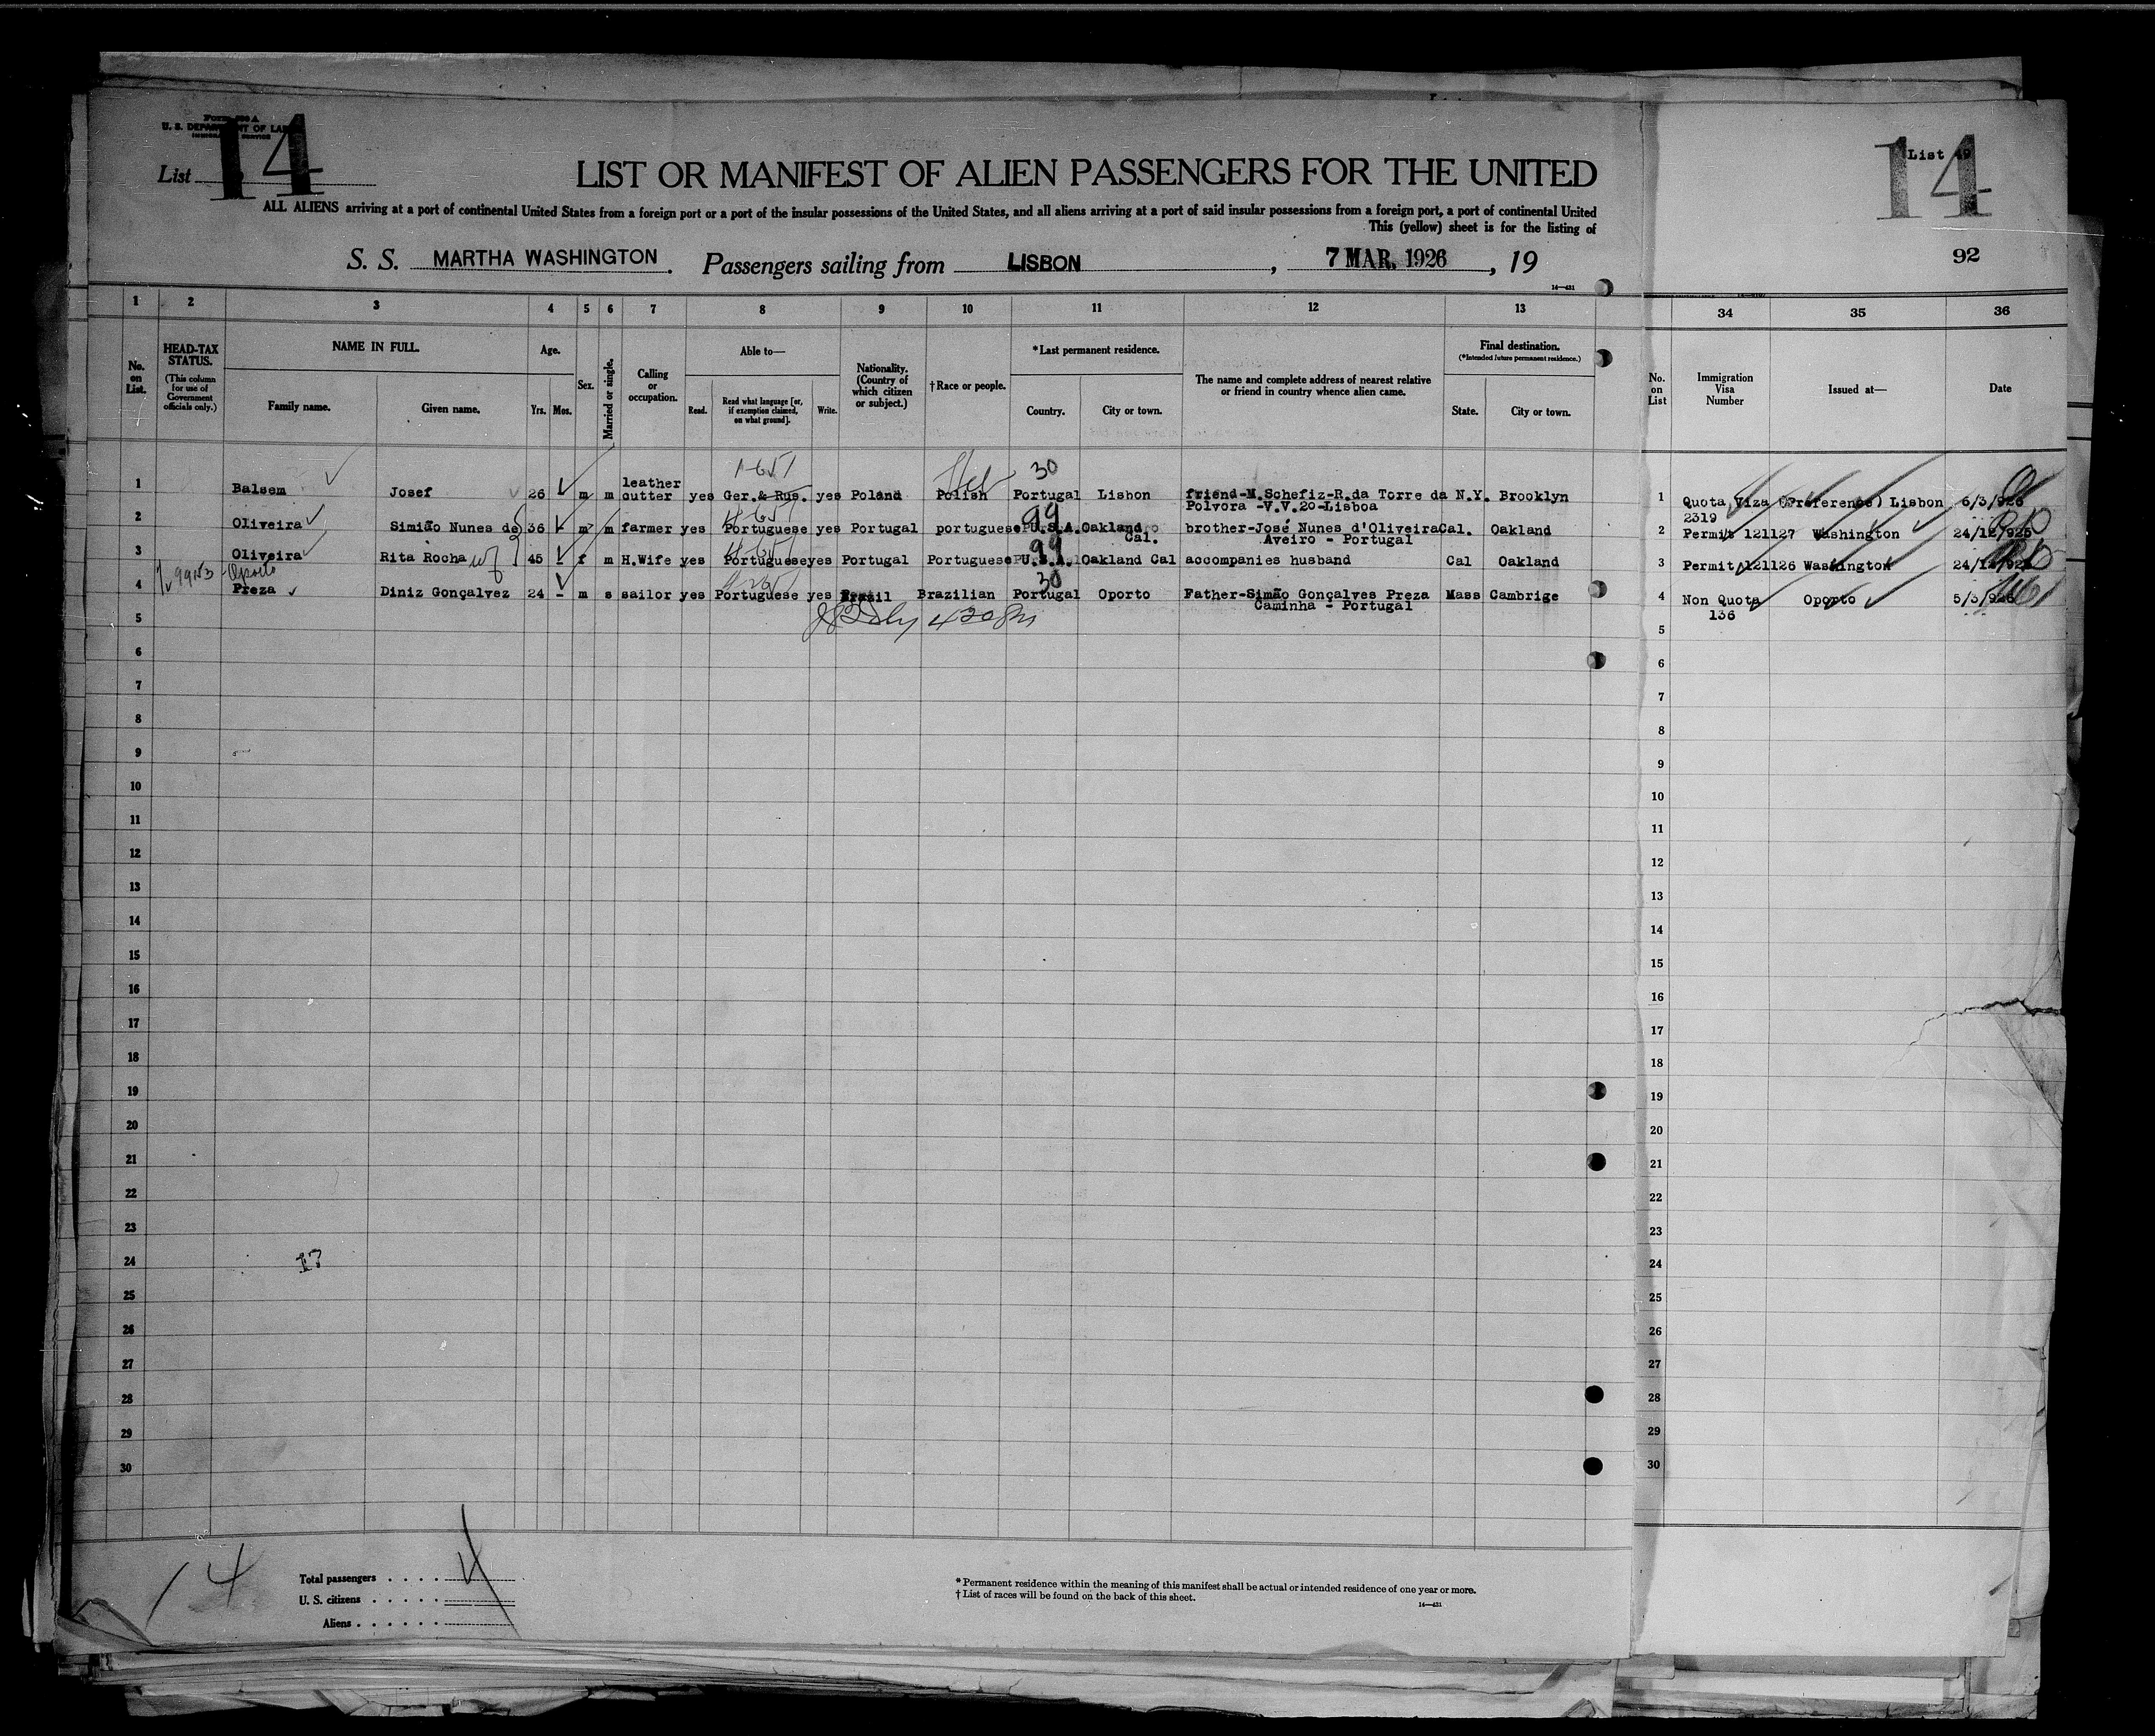 U. S. DEPARTMENT OF LABOR
List 14
LIST OR MANIFEST OF ALIEN PASSENGERS FOR THE UNITED
ALL ALIENS arriving at a port of continental United States from a foreign port or a port of the insular possessions of the United States, and all aliens arriving at a port of said insular possessions from a foreign port, a port of continental United
This (yellow) sheet is for the listing of
S. S. MARTHA WASHINGTON. Passengers sailing from LISBON, 7 MAR. 1926, 19
14—431
List
14
92
1 2 3 4 5 6 7 8 9 10 11 12 13
34 35 36
No. on List.
HEAD-TAX STATUS.
(This column for use of Government officials only.)
NAME IN FULL.
Family name. Given name.
Age.
Yrs. Mos.
Sex.
Married or single.
Calling or occupation.
Able to—
Read. Read what language [or, if exemption claimed, on what ground]. Write.
Nationality. (Country of which citizen or subject.)
†Race or people.
*Last permanent residence.
Country. City or town.
The name and complete address of nearest relative or friend in country whence alien came.
Final destination.
(*Intended future permanent residence.)
State. City or town.
No. on List
Immigration Visa Number
Issued at—
Date
1 Balsem Josef 26 m m leather cutter yes Ger.& Rus. yes Poland Polish Heb 30 Portugal Lisbon friend-M.Schefiz-R.da Torre da Polvora -V.V.20-Lisboa N.Y. Brooklyn
1 Quota Viza (Preference) Lisbon 6/3/926
2319
2 Oliveira Simião Nunes de 36 - m m farmer yes Portuguese yes Portugal portuguese 99 U.S.A. Oakland Cal. brother-José Nunes d'Oliveira Aveiro - Portugal Cal. Oakland
2 Permit 121127 Washington 24/12/925
3 Oliveira Rita Rocha wf 45 - f m H.Wife yes Portuguese yes Portugal Portuguese 99 U.S.A. Oakland Cal accompanies husband Cal Oakland
3 Permit 121126 Washington 24/12/925
Oporto
4 Preza Diniz Gonçalvez 24 - m s sailor yes Portuguese yes Brasil Brazilian 30 Portugal Oporto Father-Simão Gonçalves Preza Caminha - Portugal Mass Cambrige
4 Non Quota Oporto 5/3/926
136
5 5
6 6
7 7
8 8
9 9
10 10
11 11
12 12
13 13
14 14
15 15
16 16
17 17
18 18
19 19
20 20
21 21
22 22
23 23
24 17 24
25 25
26 26
27 27
28 28
29 29
30 30
14
Total passengers . . . . 4
U. S. citizens . . . . .
Aliens . . . . . .
* Permanent residence within the meaning of this manifest shall be actual or intended residence of one year or more.
† List of races will be found on the back of this sheet.
14—431